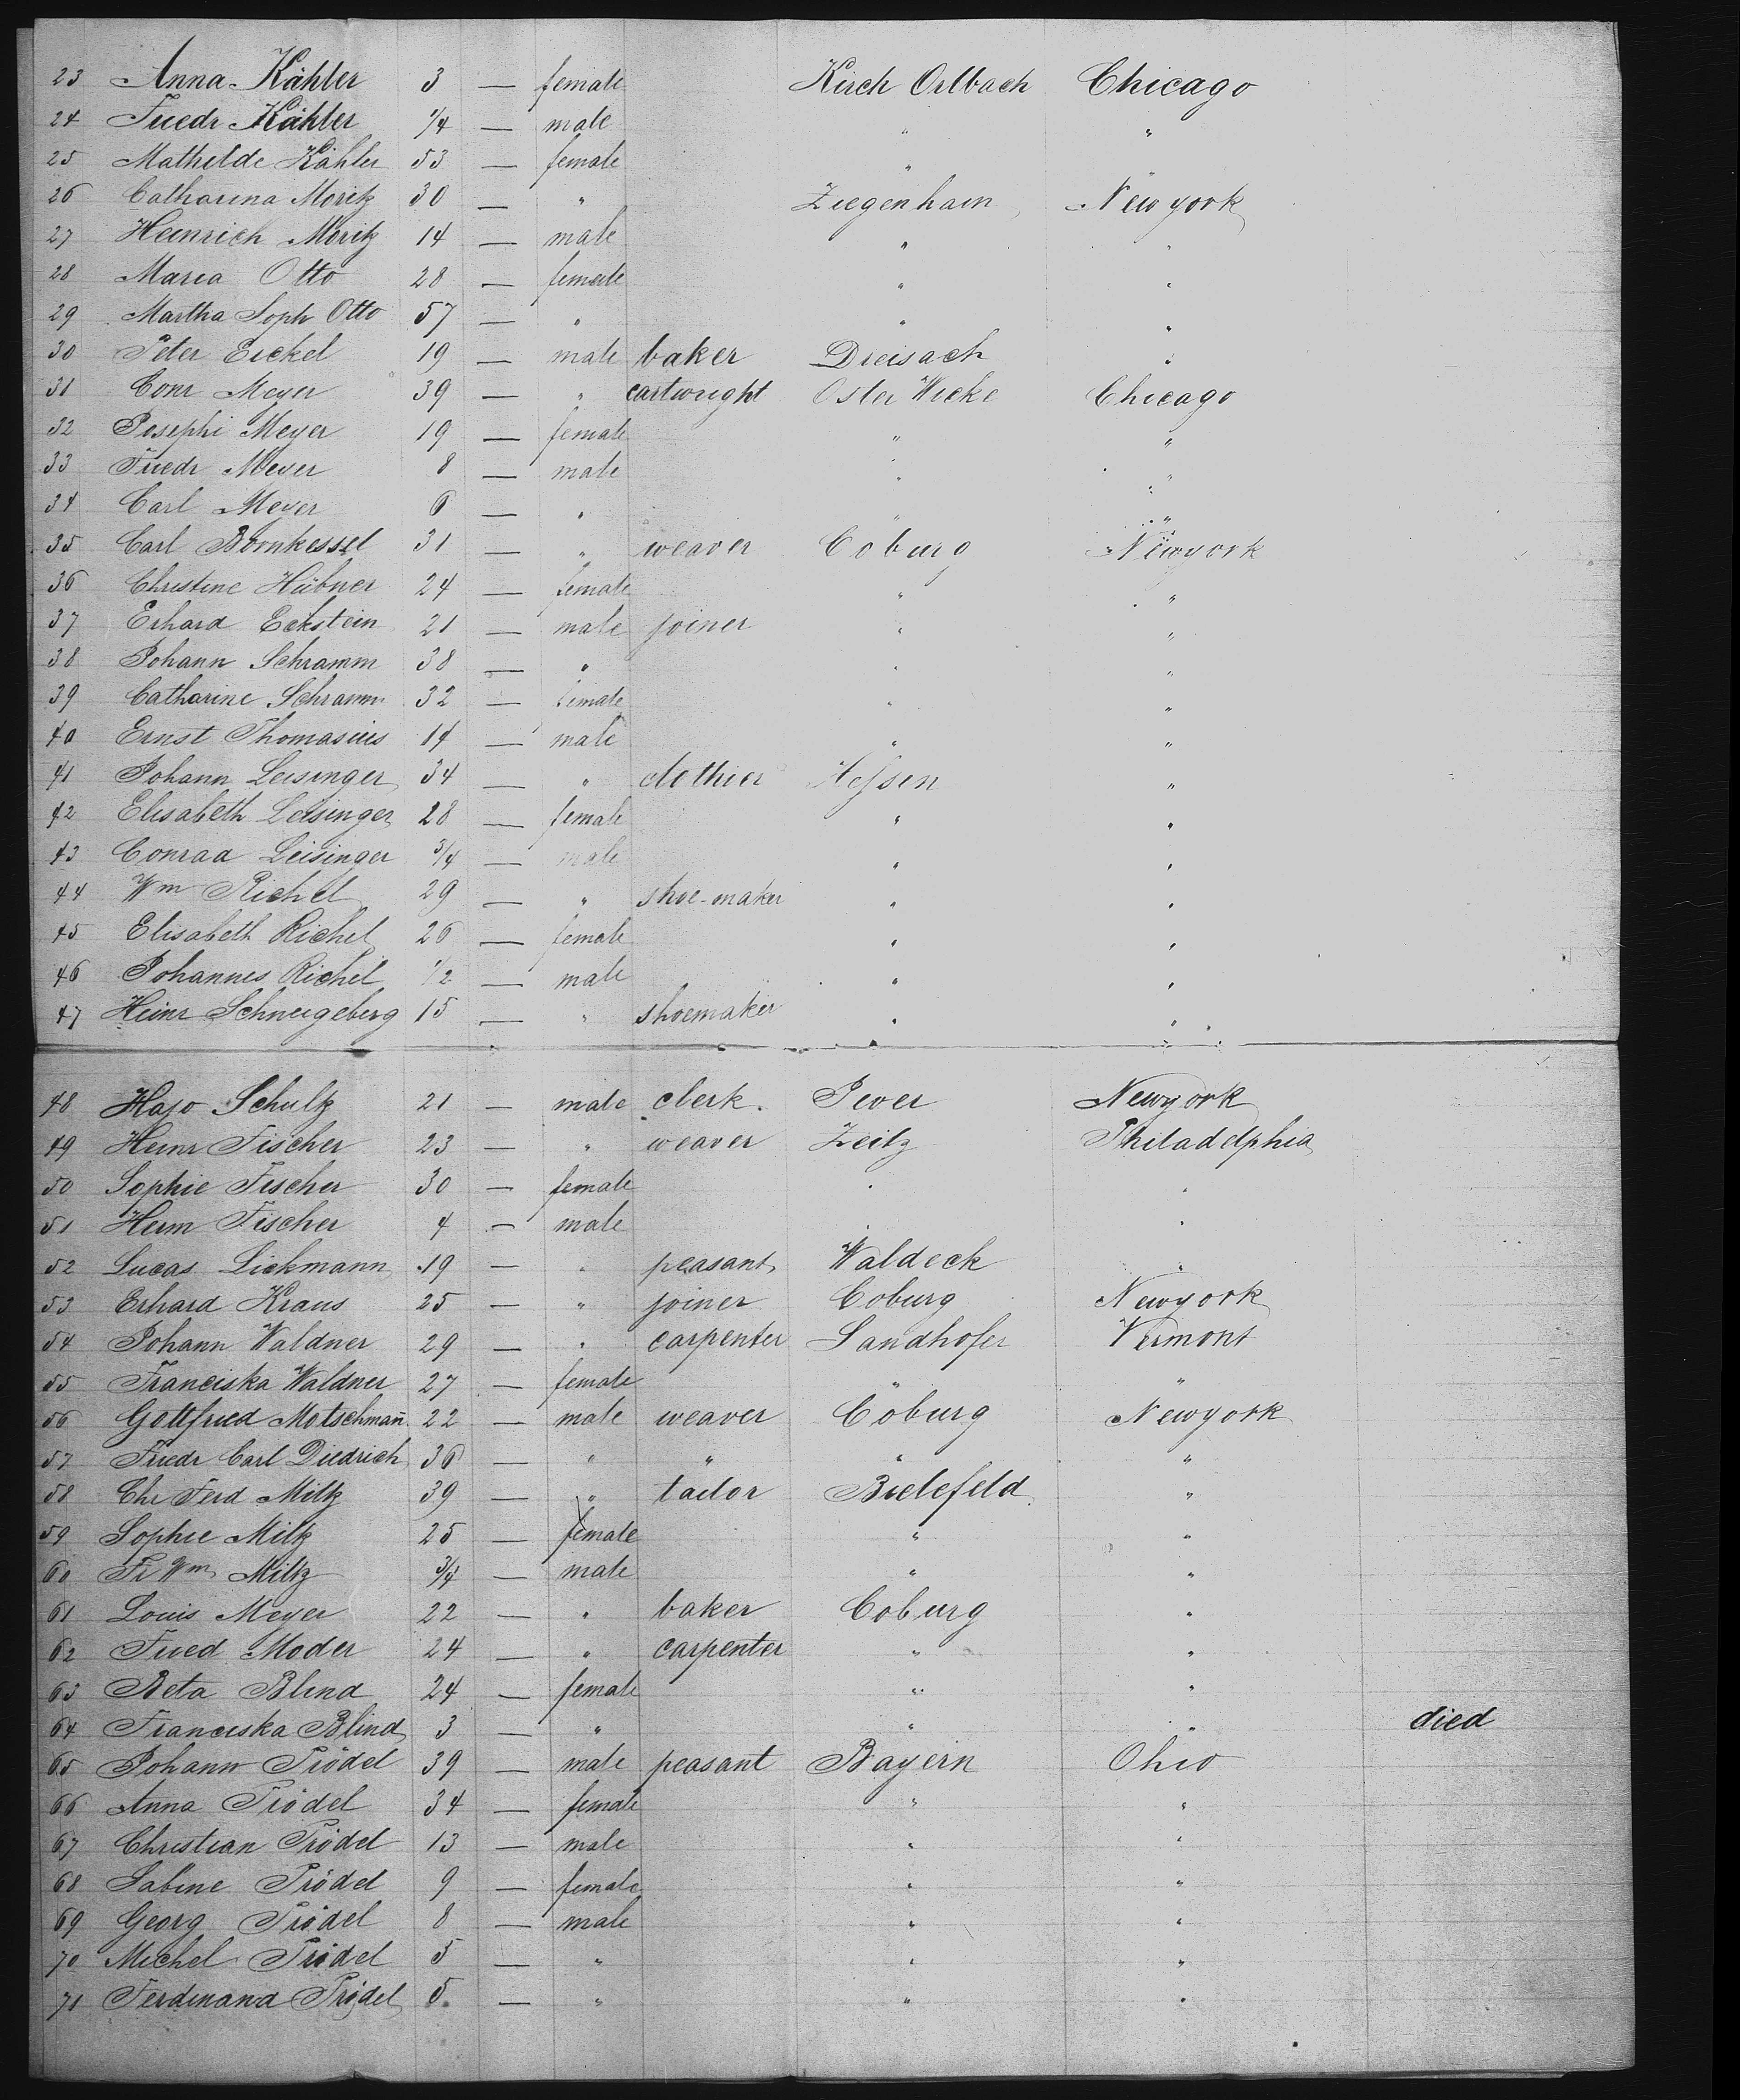 23 Anna Kähler 3 — female Kirch Orlbach Chicago
24 Friedr Kähler 1/4 — male " "
25 Mathilde Kähler 53 — female " "
26 Catharina Moritz 30 — " Ziegenhain Newyork
27 Heinrich Moritz 14 — male " "
28 Maria Otto 28 — female " "
29 Martha Soph Otto 57 — " " "
30 Peter Eickel 19 — male baker Dreisach "
31 Conr Meyer 39 — " cartwright Oster Wieke Chicago
32 Josephi Meyer 19 — female " "
33 Friedr Meyer 8 — male " "
34 Carl Meyer 6 — " " "
35 Carl Bornkessel 31 — " weaver Coburg Newyork
36 Christine Hübner 24 — female " "
37 Erhard Eckstein 21 — male joiner " "
38 Johann Schramm 38 — " " "
39 Catharine Schramm 32 — female " "
40 Ernst Thomasius 14 — male " "
41 Johann Leisinger 34 — " clothier Hessen "
42 Elisabeth Leisinger 28 — female " "
43 Conrad Leisinger 3/4 — male " "
44 Wm Richel 29 — " shoe-maker " "
45 Elisabeth Richel 26 — female " "
46 Johannes Richel 1/2 — male " "
47 Heinr Schneigeberg 15 — " shoemaker " "
48 Hajo Schultz 21 — male clerk. Jever Newyork
49 Heinr Fischer 23 — " weaver Zeitz Philadelphia
50 Sophie Fischer 30 — female " "
51 Herm Fischer 4 — male " "
52 Lucas Lickmann 19 — " peasant Waldeck "
53 Erhard Kraus 25 — " joiner Coburg Newyork
54 Johann Waldner 29 — " carpenter Sandhofer Vermont
55 Franciska Waldner 27 — female " "
56 Gottfried Motschmañ 22 — male weaver Coburg Newyork
57 Friedr Carl Diedrich 36 — " " " "
58 Chr Ferd Miltz 39 — " tailor Bielefeld "
59 Sophie Miltz 25 — female " "
60 Fr Wm Miltz 3/4 — male " "
61 Louis Meyer 22 — " baker Coburg "
62 Fried Moder 24 — " carpenter " "
63 Beta Blind 24 — female " "
64 Franciska Blind 3 — " " " died
65 Johann Trödel 39 — male peasant Bayern Ohio
66 Anna Trödel 34 — female " "
67 Christian Trödel 13 — male " "
68 Sabine Trödel 9 — female " "
69 Georg Trödel 8 — male " "
70 Michel Trödel 5 — " " "
71 Ferdinand Trödel 5. — " " "